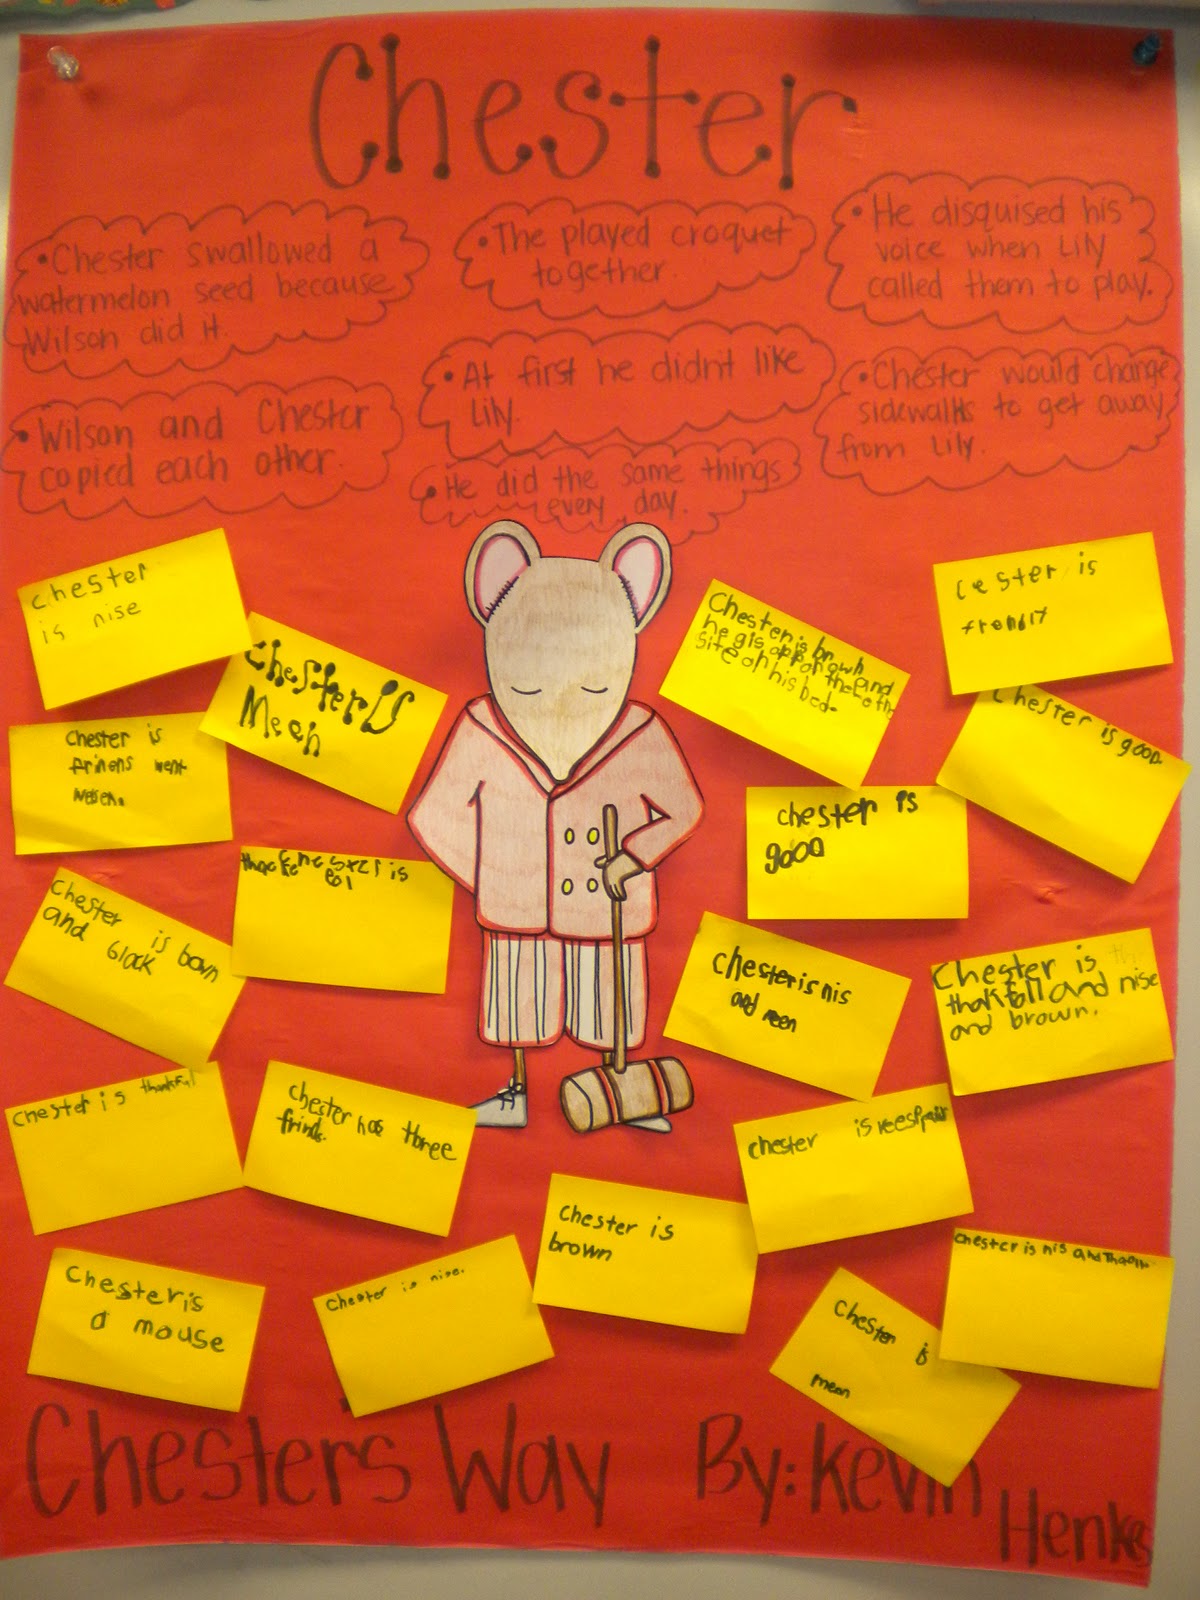 Chester
• Chester swallowed a
watermelon seed because
Wilson did it.
• The played croquet
together.
• He disquised his
voice when Lily
called them to play.
• Wilson and Chester
copied each other.
• At first he didn't like
Lily.
• Chester would change
sidewalks to get away
from Lily.
• He did the same things
every day.
chester
is nise
Chester is
Meen
Chester is brown
he gis opp on the and
site on his bed.
cester is
Chester is good.
Chester is
chester is
good
Chester is bown
and black
chester is nis
and meen
Chester is
thakfoll and nise
and brown.
chester is thankful
chester has three
frinds.
chester is
chester is
brown
Chester is
a mouse
chester is nise.
chester is
mean
chester is nis and
Chester's Way By: Kevin
Henkes